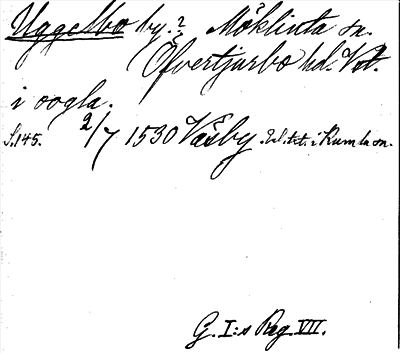 Uggelbo by.? Möklinta sn.
Öfvertjurbo hd. Vst.
i oogla.
S.145. 2/7 1530 Väsby. i Kumla sn.
G. I:s Reg. VII.